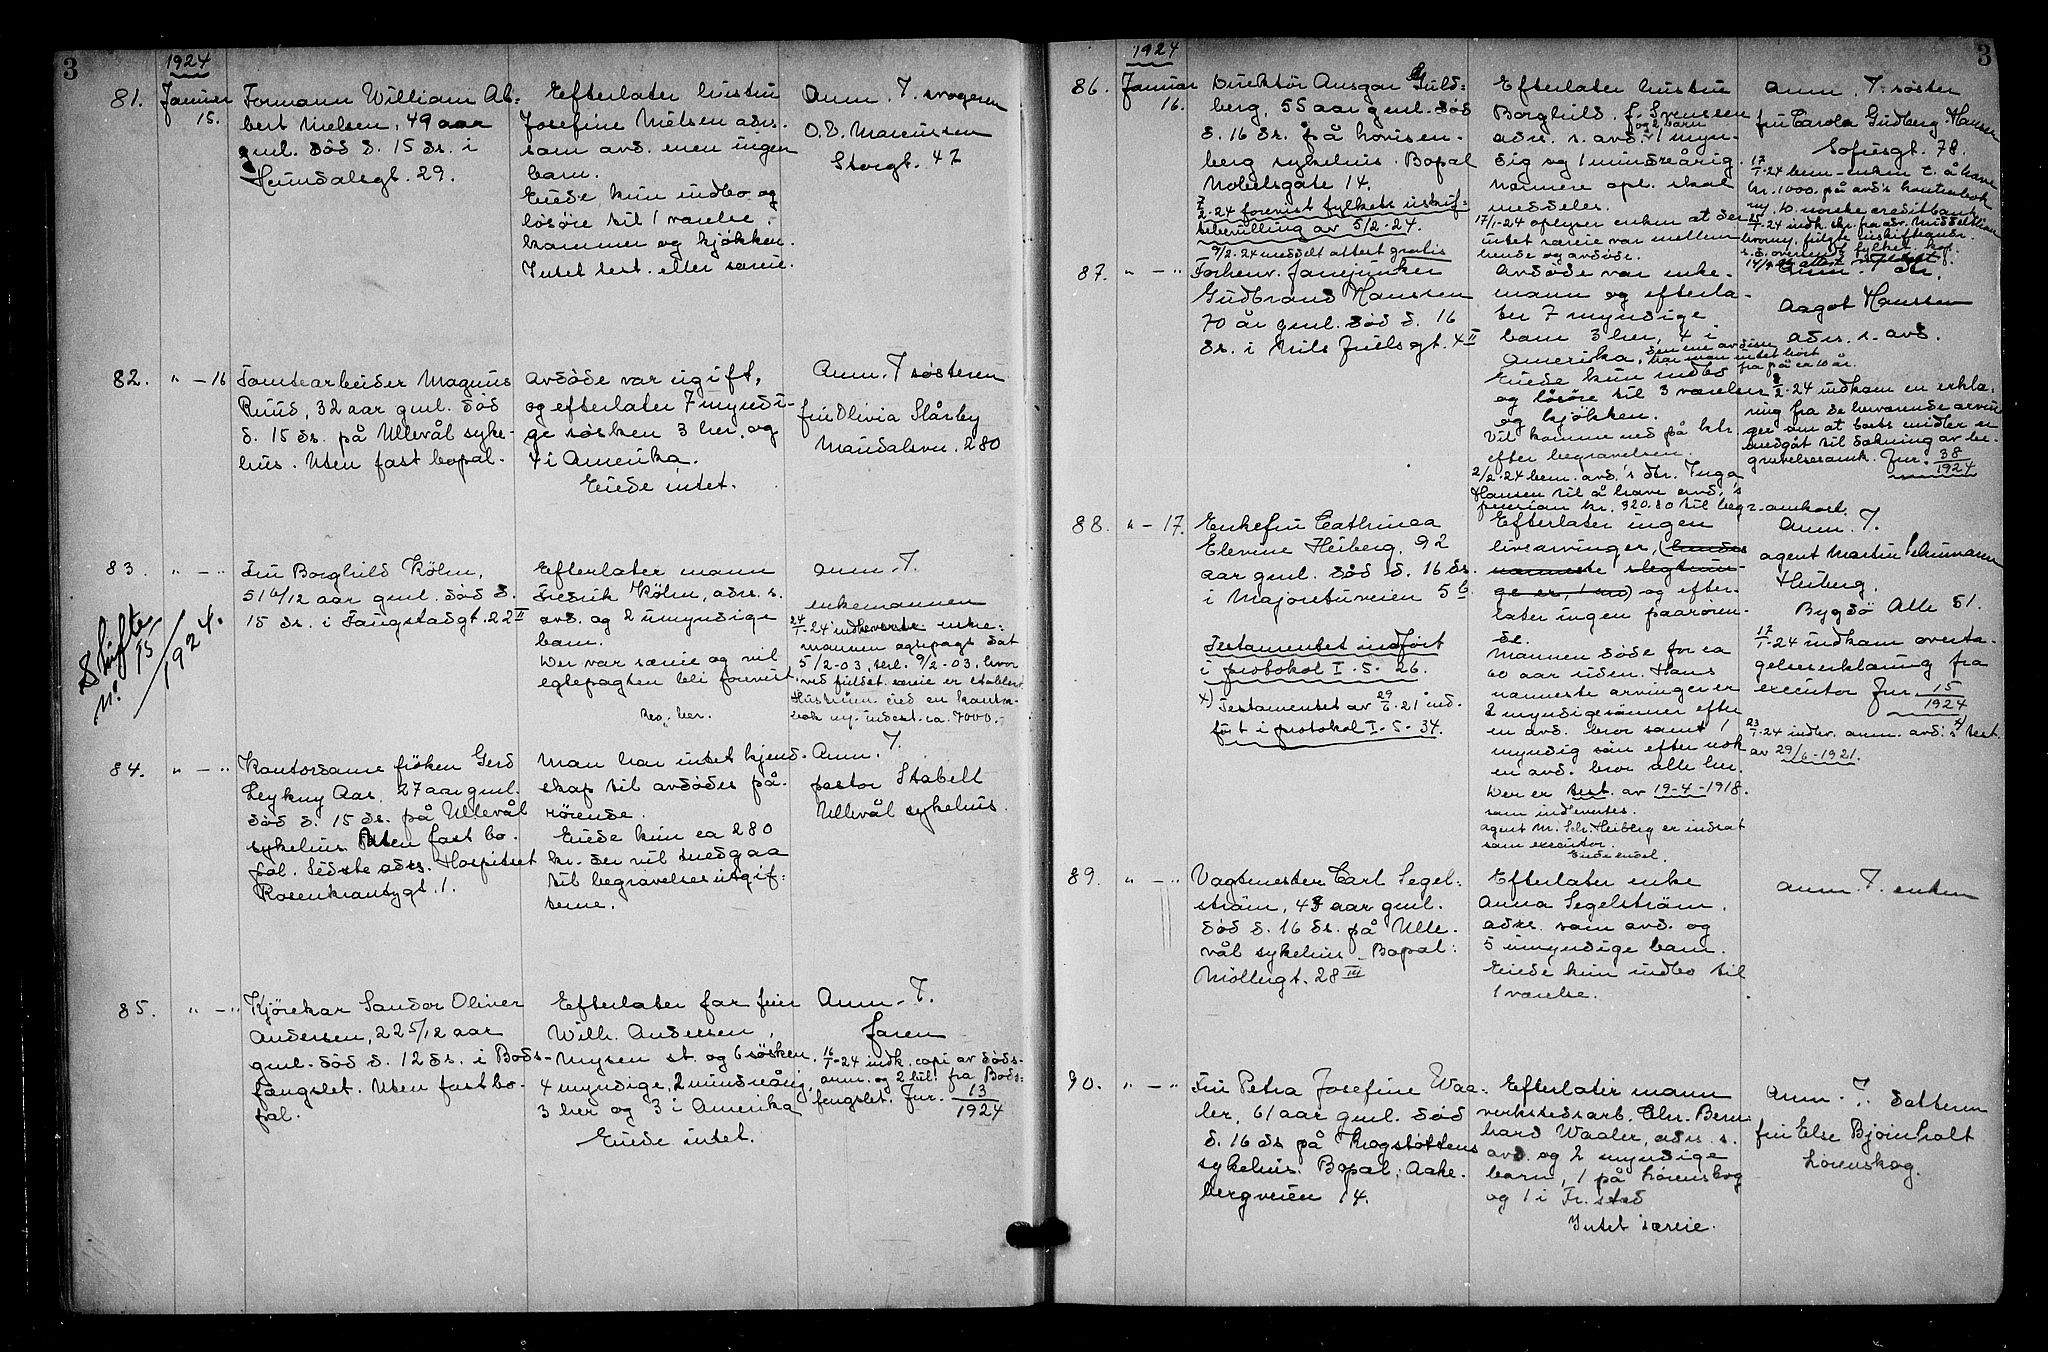 3
1924
81.
Januar
15.
Formann William Al=
bert Nielsen, 49 aar
gml. død d. 15 ds. i
Heimdalsgt. 29.
Efterlater hustru
Josefine Nielsen adrs.
som avd. men ingen
barn.
Eiede kun indbo og
løsøre til 1 værelse,
kammer og kjøkken.
Intet test. eller særeie.
Anm. T. svogeren
O. E. Marcussen
Storgt. 47
82.
" - 16
Tomtearbeider Magnus
Ruud, 32 aar gml. død
d. 15 ds. på Ullevål syke-
hus. Uten fast bopal.
Avdøde var ugift,
og efterlater 7 myndi-
ge søsken 3 her, og
4 i Amerika.
Eiede intet.
Anm. T søsteren
fru Olivia Slårby
Maridalsvn. 280
83.
" - "
Skifte
nº 15/1924.
Fru Borghild Kölm,
51 6/12 aar gml. død d.
15 ds. i Fougstadsgt. 22 II
Efterlater mann
Fredrik Kölm, adrs. s.
avd. og 2 umyndige
barn.
Der var særeie og vil
egtepagten bli forevist
Reg. her.
Anm. T.
enkemannen
24/1-24 indleverte enke=
mannen egtepagt dat
5/2-03, tinl. 9/2-03, hvor
ved fuldst. særeie er etablert.
Hustruen eied en kontra-
bok ny. indest. ca. 7000.-
84.
" - "
Kontordame frøken Gerd
Leykny Aas, 27 aar gml.
død d. 15 ds. på Ullevål
sykehus. Uten fast bo-
pal. Sidste adrs. Hospitset
Rosenkrantzgt. 1.
Man har intet kjend-
skap til avdødes på-
rørende.
Eiede kun ca 280
kr. der vil medgaa
til begravelsesutgif=
terne.
Anm. T.
pastor Stabell
Ullevål sykehus.
85.
" - "
Kjørekar Sandor Oliver
Andersen, 22 5/12 aar
gml. død d. 12 ds. i Bods-
fængslet. Uten fast bo-
pal.
Efterlater far feier
Wilh. Andersen,
Mysen st. og 6 søsken,
4 myndige, 2 mindreårig,
3 her og 3 i Amerika
Eiede intet.
Anm. T.
faren
16/1-24 indk. copi av døds-
anm. og 2 bil. fra Bods-
fengslet. Jnr. 13/1924
3
1924
86.
Januar
16.
Direktør Ansgar Guld-
berg, 55 aar gml. død
d. 16 ds. på Lovisen-
berg sykehus. Bopal
Nobelsgate 14.
7/2-24 forevist fylkets uskif-
tebevilling av 5/2-24.
9/2-24 meddelt attest gratis
Efterlater hustru
Borghild, f. Svensen
adrs. s. avd. og 2 barn 1 myn-
dig og 1 mindreårig.
Nærmere opl. skal
meddeles.
17/1-24 oplyser enken at der
intet særeie var mellem
hende og avdøde.
Anm. T. søster
fru Carola Gudberg-Hansen
Sofiesgt. 78.
17/1-24 bem. enken t. å hæve
kr. 1000. på avd's kontrabok
ny. 10. norske creditbank
25/1-24 indk. skr. fra adv. Middelthon
87.
" - "
Forhenv. farvejunker
Gudbrand Hanssen
70 år gml. død d. 16
ds. i Nils Juelsgt. 4 II
Avdøde var enke-
mann og efterla-
ter 7 myndige
barn 3 her, 4 i
Amerika, den ene av disse
har man intet hørt
fra på er 10 år.
Eiede kun indbo
og løsøre til 3 værelser
og kjøkken.
Vil komme ned på ktr.
efter begravelsen.
2/2-24 bem. avd.'s dtr. Inga
Hansen til å hæve avd.'s
pension kr. 320.80 til beg-
r. omkost.
Anm. dtr.
Aagot Hanssen
adrs. s. avd.
8/2-24 indkom en erklæ-
ring fra de herværende arvin
ger om at boets midler er
medgåt til dækning av be-
gravelsesomk. Jnr. 38/1924
88.
" - 17.
Enkefru Cathinca
Elevine Heiberg, 92
aar gml. død d. 16 ds.
i Majorstuveien 5 b
Testamentet indført
i protokol I. S. 26.
x) Testamentet av 29/6-21 ind-
ført i protokol I-S-34.
Efterlater ingen
livsarvinger, (hendes
nærmeste slegtnin-
ge er, 1 ) og efter-
later ingen paarøren-
de.
Mannen døde for ca
60 aar siden. Hans
nærmeste arvinger er
2 myndige sønner efter
en avd. bror samt 1
myndig søn efter nok
en avd. bror alle her.
Der er test. av 19-4-1918.
som indleveres.
Agent M. Sch. Heiberg er indsat
som executor.
Eiede endel.
Anm. T.
agent Martin Schumann
Heiberg.
Bygdø Alle 51.
17/1-24 indkom overta-
gelseserklæring fra
executor Jnr. 15/1924
23/1-24 indlev. anm. avd.'s x) test.
av 29/6-1921.
89.
" - "
Vagtmester Carl Segel-
strøm, 43 aar gml.
død d. 16 ds. på Ulle-
vål sykehus. Bopal:
Møllergt. 28 III
Efterlater enke
Anna Segelstrøm,
adrs. som avd. og
5 umyndige barn.
Eiede kun indbo til
1 værelse.
Anm. T. enken
90.
" - "
Fru Petra Josefine Waa-
ler, 61 aar gml. død
d. 16 ds på Krogstøttens
sykehus. Bopal: Aake-
bergveien 14.
Efterlater mann
verkstedsarb. Chr. Bern-
hard Waaler, adrs. s.
avd. og 2 myndige
barn, 1 på Lørenskog
og 1 i Fr. stad
Intet særeie.
Anm. T. datteren
fru Else Bjørnholt
Lørenskog.